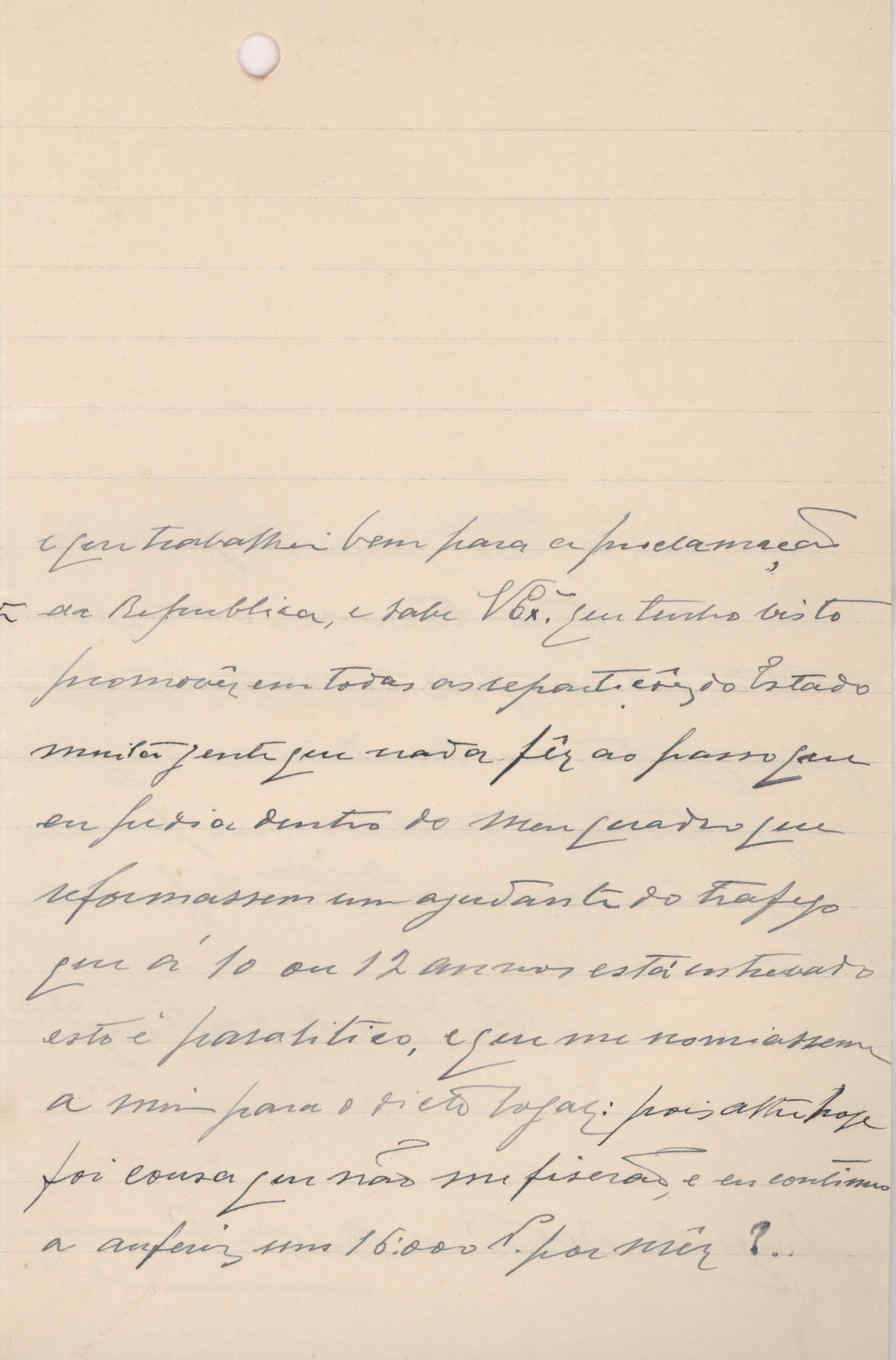 e que trabalhei bem para a proclamação
da Republica, e sabe V Exª. que tenho visto
promovêr em todas as repartições do Estado
muita gente que nada fêz ao passo que
eu pedia dentro do meu quadro que
reformassem um ajudante do trafego
que á 10 ou 12 annos está entrevado
esto é paralitico, e que me nomiassem
a mim para o dicto logar: pois athe hoje
foi cousa que não me fiserão, e eu continuo
a auferir um 16:000 r. por mêz ?..